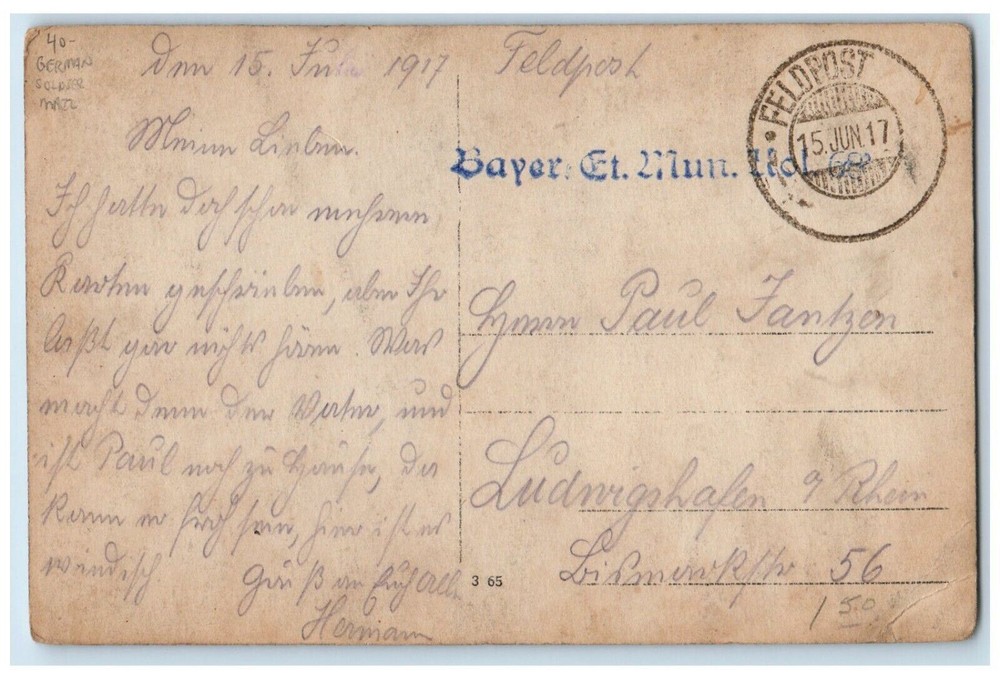 40-
GERMAN
SOLDIER
MAIL
den 15. Juni 1917
Feldpost
FELDPOST
15.JUN.17
Bayer. Et. Mun. Kol.
Meine Lieben.
Ich hatte doch schon mehrere
Karten geschrieben, aber Ihr
laßt gar nichts hören. Was
macht denn der Vater, und
ist Paul noch zu Hause, da
kann er froh sein, hier ist es
windisch
Gruß an Euch alle
Hermann
Herrn Paul Jantzen
Ludwigshafen a/ Rhein
Bismarkstr 56
3 65
1 50